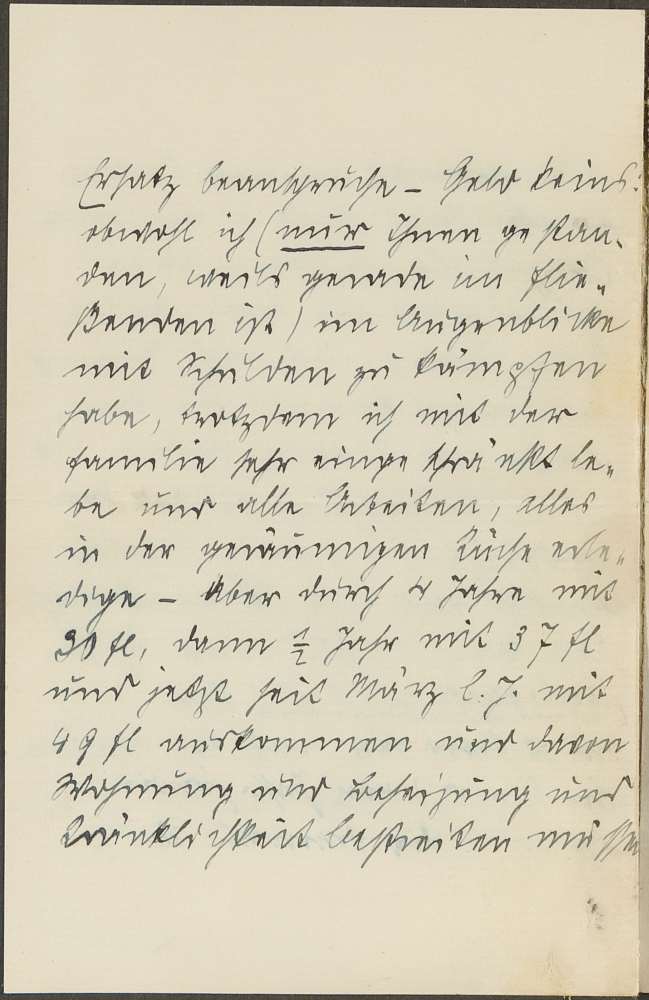 Ersatz beanspruche – Geld keins:
obwohl ich (nur Ihnen gestan-
den, weils gerade im flie-
ßenden ist) im Augenblicke
mit Schulden zu kämpfen
habe, trotzdem ich mit der
Familie sehr eingeschränkt le-
be und alle Arbeiten, alles
in der geräumigen Küche erle-
dige – Aber durch 4 Jahre mit
30 fl, dann ½ Jahr mit 37 fl
und jetzt seit März l. J. mit
49 fl auskommen und davon
Wohnung und Beheizung und
Kränklichkeit bestreiten müssen